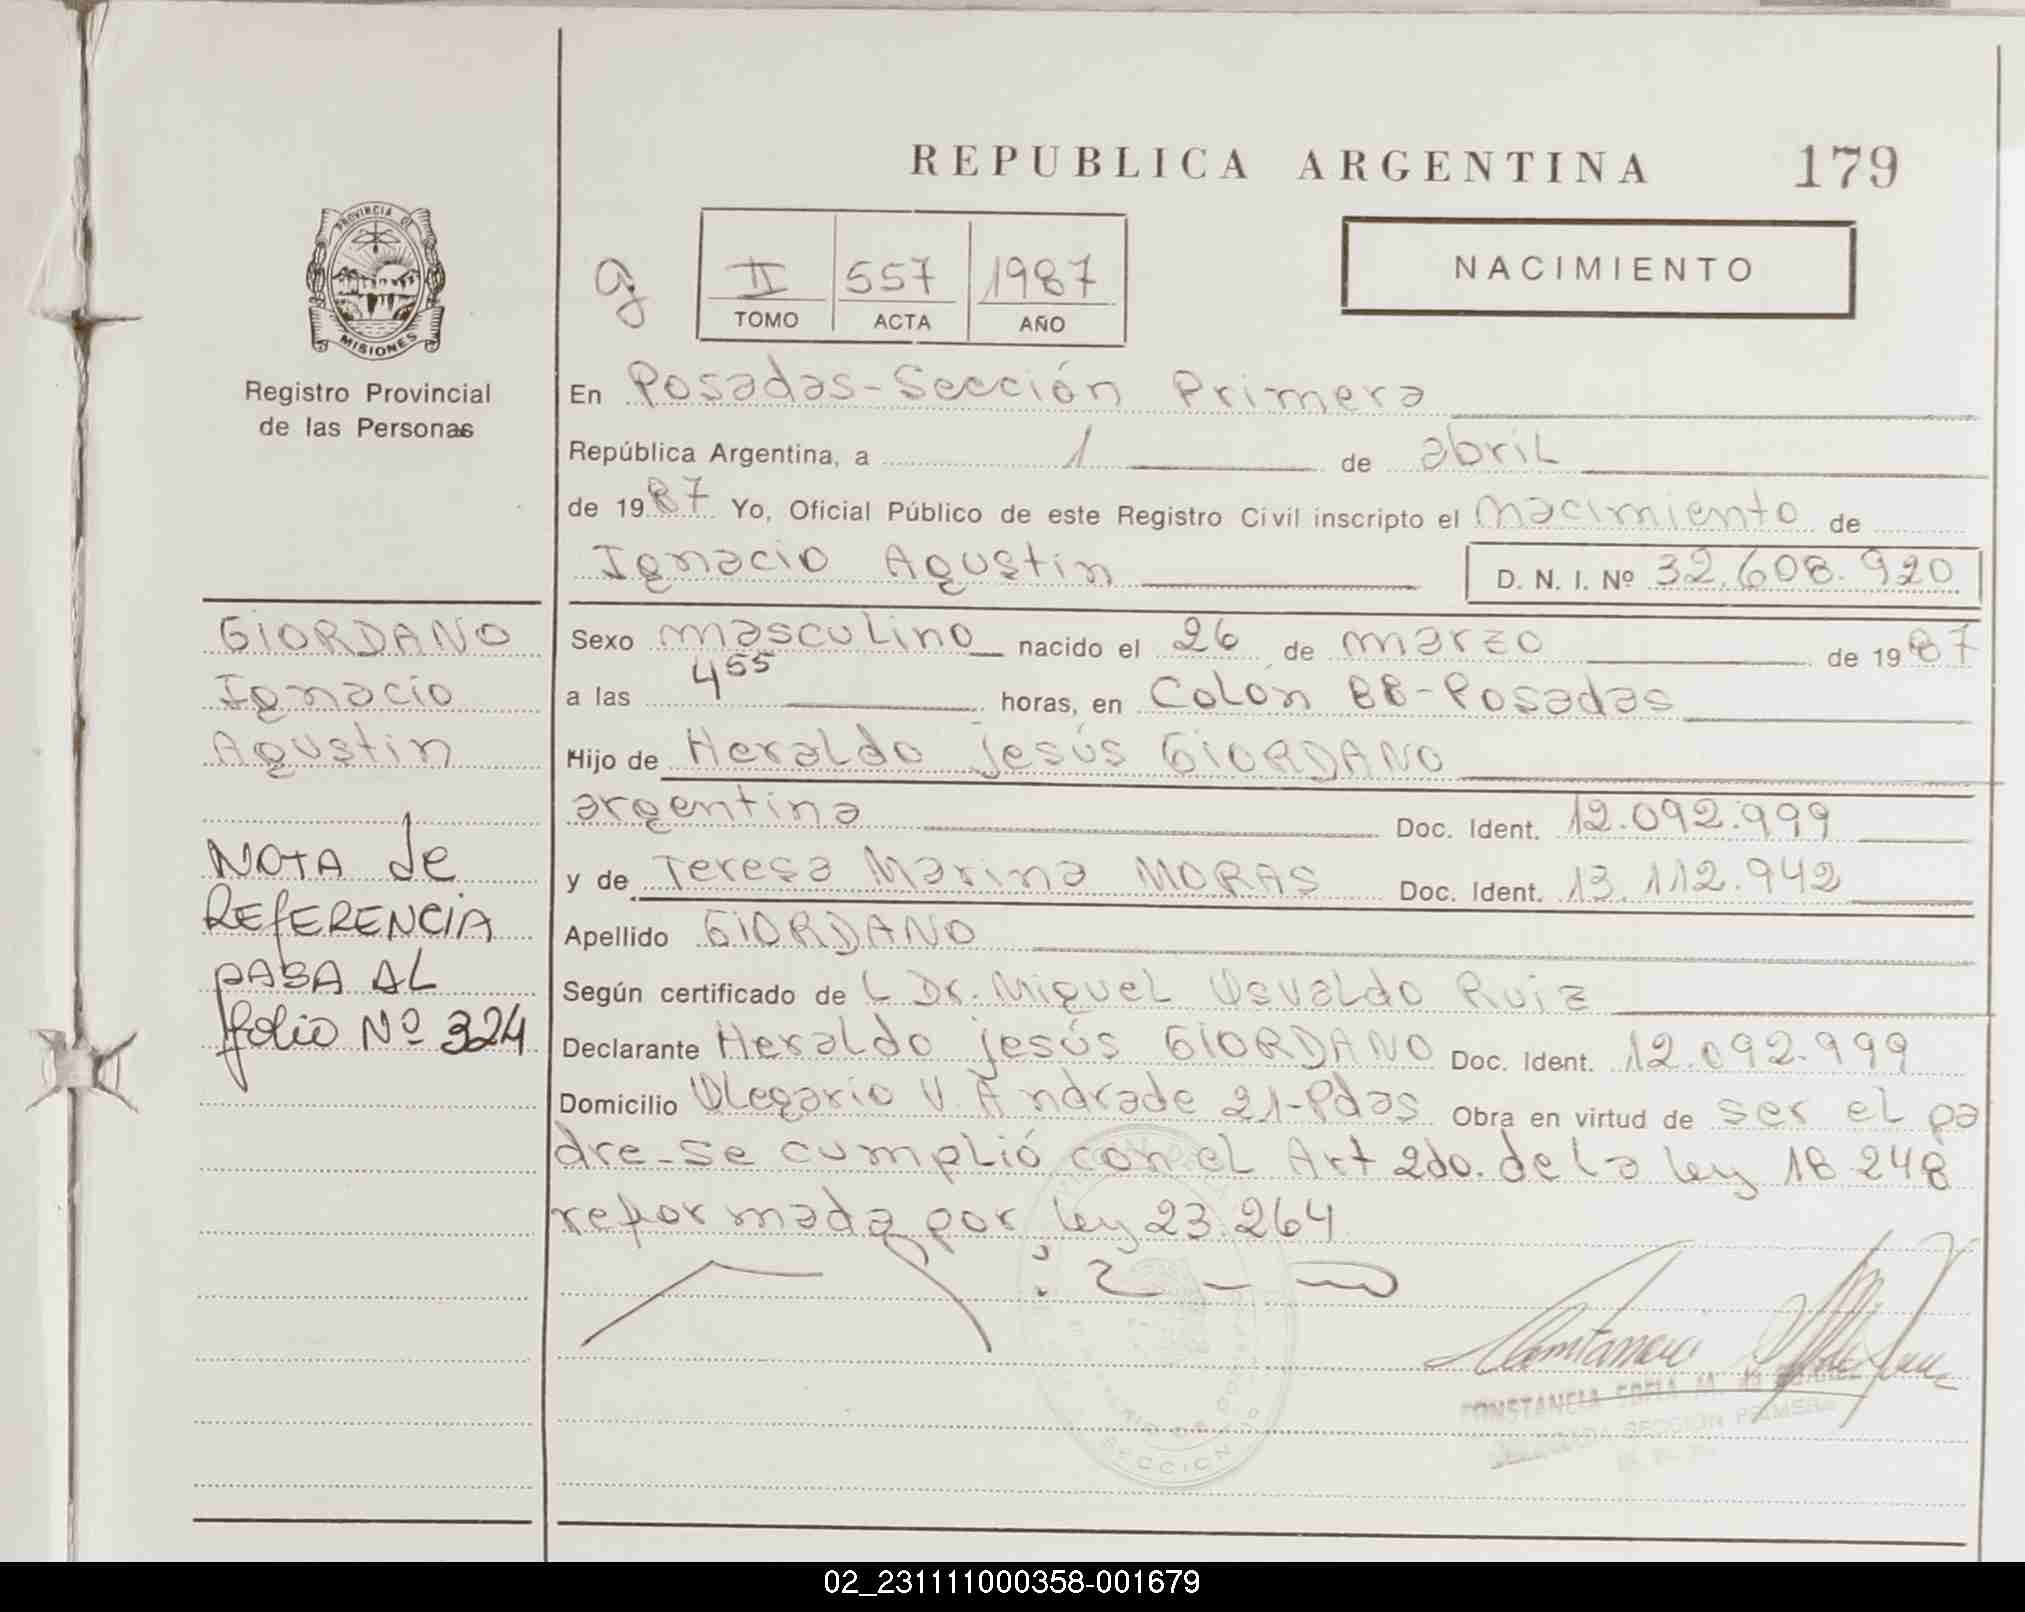 REPUBLICA ARGENTINA 179
PROVINCIA DE
MISIONES
Registro Provincial
de las Personas
II 557 1987
TOMO ACTA AÑO
NACIMIENTO
En Posadas-Sección Primera
República Argentina, a 1 de abril
de 1987 Yo, Oficial Público de este Registro Civil inscripto el nacimiento de
Ignacio Agustin D. N. I. Nº 32.608.920
GIORDANO
Ignacio
Agustin
NOTA de
REFERENCIA
PASA AL
folio Nº 324
Sexo masculino nacido el 26 de marzo de 1987
a las 4 55 horas, en Colon 88-Posadas
Hijo de Heraldo Jesús GIORDANO
argentina Doc. Ident. 12.092.999
y de Teresa Marina MORAS Doc. Ident. 13.112.942
Apellido GIORDANO
Según certificado de L Dr. Miguel Osvaldo Ruiz
Declarante Heraldo Jesús GIORDANO Doc. Ident. 12.092.999
Domicilio Olegario V. Andrade 21-Pdas Obra en virtud de ser el pa
dre-se cumplió con el Art 2do. de la ley 18.248
reformada por ley 23.264
CONSTANCIA SOFIA M.
SECCION PRIMERA
SECCION
02_231111000358-001679